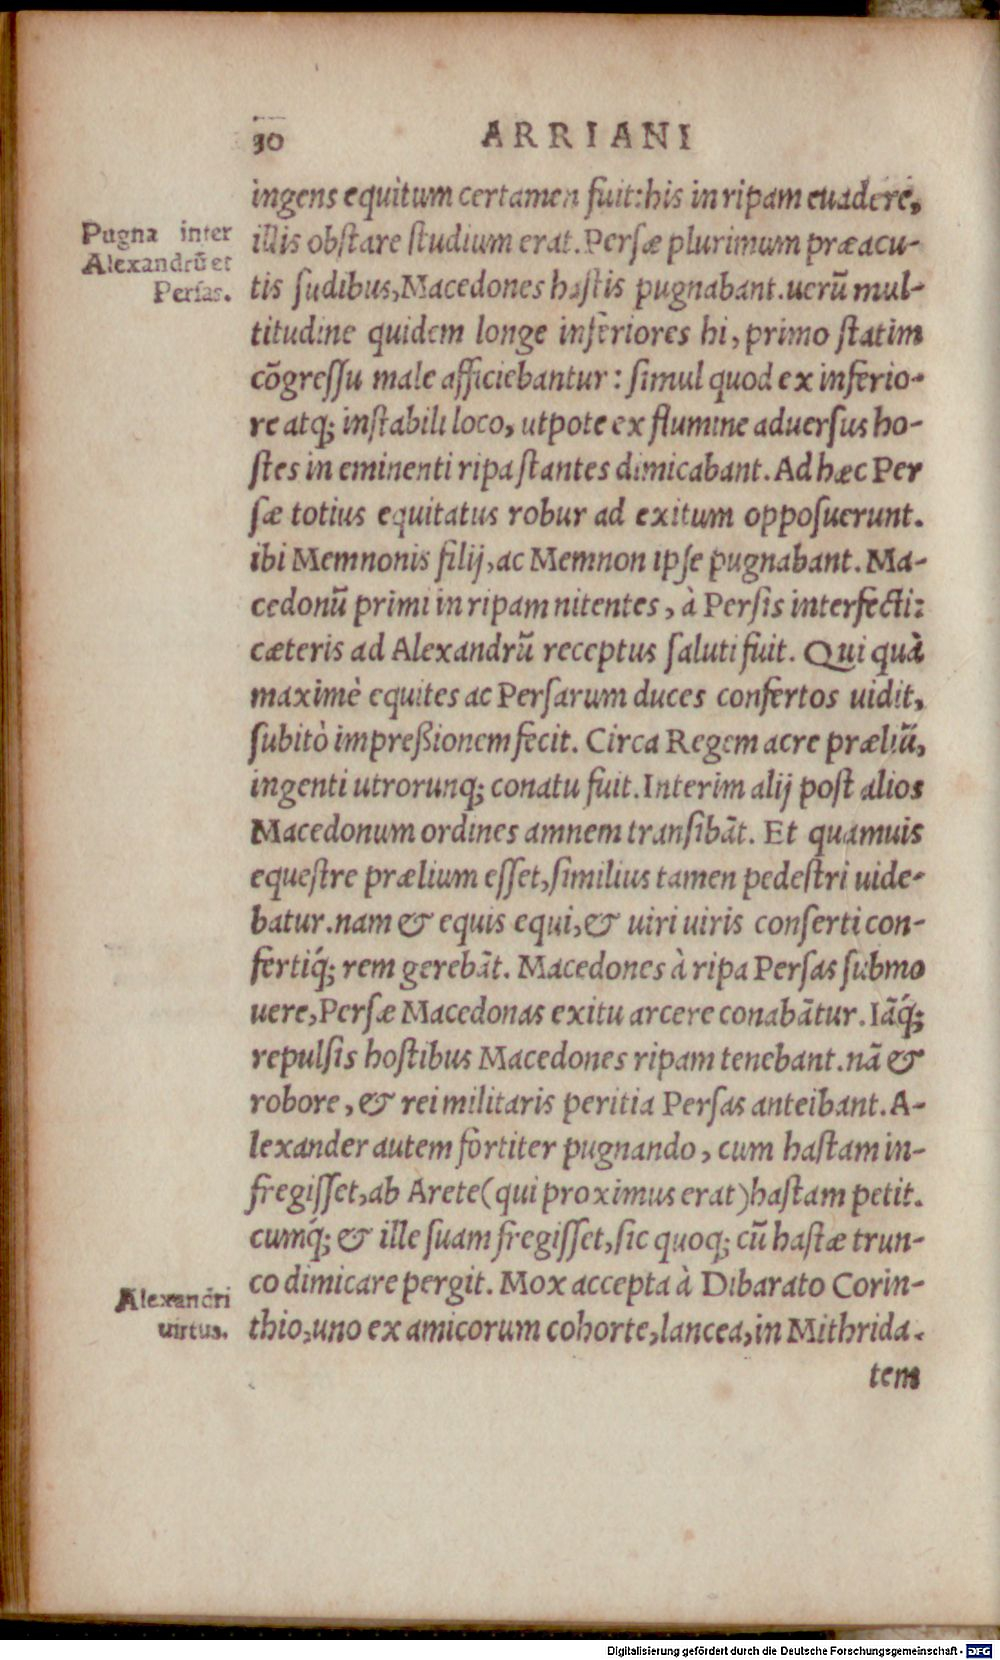 30 ARRIANI
ingens equitum certamen fuit: his in ripam euadere,
Pugna inter
Alexandrũ et
Persas.
illis obſtare ſtudium erat. Perſæ plurimum præacu-
tis ſudibus, Macedones haſtis pugnabant. uerũ mul-
titudine quidem longe inferiores hi, primo ſtatim
cõgreſſu male afficiebantur: ſimul quod ex inferio-
re atq; inſtabili loco, utpote ex flumine aduerſus ho-
ſtes in eminenti ripa ſtantes dimicabant. Ad hæc Per
ſæ totius equitatus robur ad exitum oppoſuerunt.
ibi Memnonis filij, ac Memnon ipſe pugnabant. Ma-
cedonũ primi in ripam nitentes, à Perſis interfecti:
cæteris ad Alexandrũ receptus ſaluti fuit. Qui quà
maximè equites ac Perſarum duces confertos uidit,
ſubitò impreßionem fecit. Circa Regem acre præliũ,
ingenti utrorunq; conatu fuit. Interim alij poſt alios
Macedonum ordines amnem tranſibãt. Et quamuis
equeſtre prælium eſſet, ſimilius tamen pedeſtri uide-
batur. nam & equis equi, & uiri uiris conſerti con-
fertiq́; rem gerebãt. Macedones à ripa Perſas ſubmo
uere, Perſæ Macedonas exitu arcere conabãtur. Iãq́;
repulſis hoſtibus Macedones ripam tenebant. nã &
robore, & rei militaris peritia Perſas anteibant. A-
lexander autem fortiter pugnando, cum haſtam in-
fregiſſet, ab Arete (qui proximus erat) haſtam petit.
cumq́; & ille ſuam fregiſſet, ſic quoq; cũ haſtæ trun-
co dimicare pergit. Mox accepta à Dibarato Corin-
Alexandri
uirtus.
thio, uno ex amicorum cohorte, lancea, in Mithrida-
tem
Digitalisierung gefördert durch die Deutsche Forschungsgemeinschaft - DFG